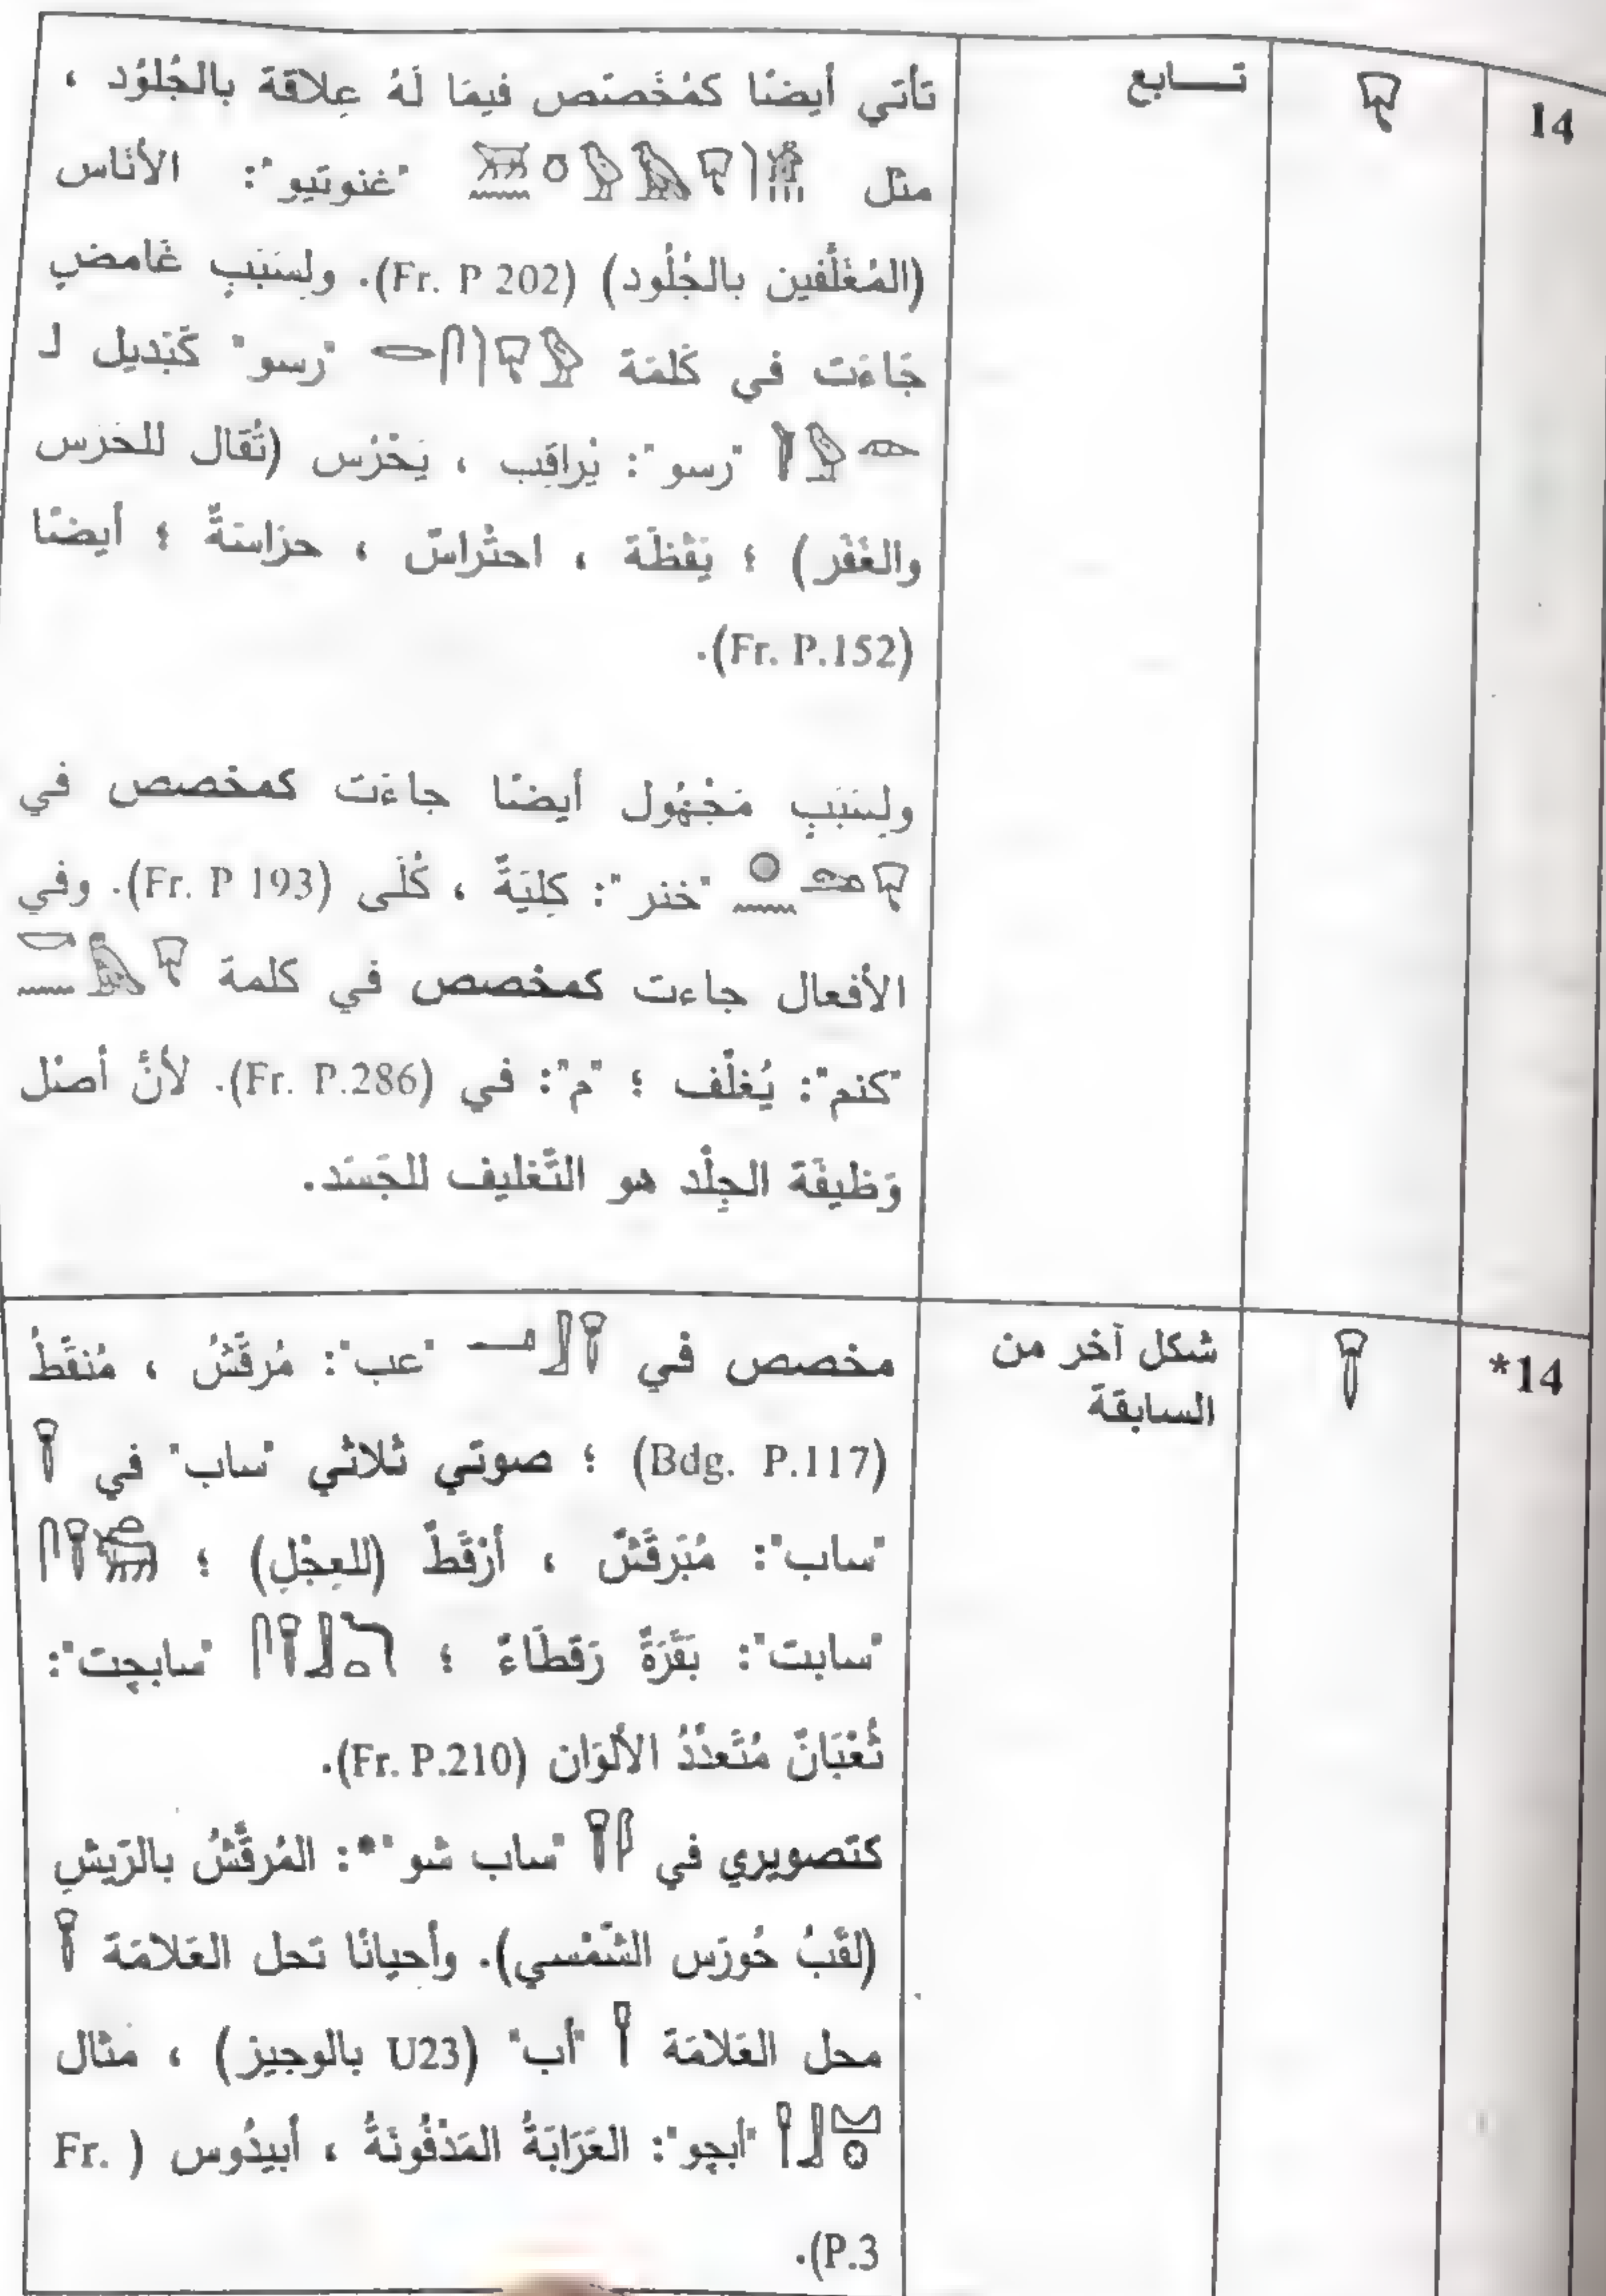 14
تـــابع
تأتي أيضًا كمُخَصتص فيمَا لَهُ عِلاقة بالجُلوُد ،
مثل "غنوتيو": الأنَاس
(المُغَلَّفين بالجُلُود) (Fr. P 202). ولِسَبَبٍ غَامضٍ
جَاءَت في كَلمَة "رسو" كَبَديل لـ
"رسو": يُراقِب ، يَحْرُس (تُقَال للحَرَس
والغَفَر) ؛ يَقظَة ، احتْراسٌ ، حرَاسَةٌ ؛ أيضًا
(Fr. P.152).
ولِسَبَبٍ مَجْهُول أيضًا جاءَت كمخصص في
"خنر": كِليَةٌ ، كُلَى (Fr. P 193). وفي
الأفعال جاءت كمخصص في كلمة
"كنم": يُغلّف ؛ "م": في (Fr. P.286). لأنَّ أصْل
وَظيفَة الجِلْد هو التَّغليف للجَسَد.
14*
شكل آخر من
السابقة
مخصص في "عب": مُرقَّشُ ، مُنقَّطُ
(Bdg. P.117) ؛ صوتي ثلاثي "ساب" في
"ساب": مُبَرقَشٌ ، أرْقَطٌ (للعِجْلِ) ؛
"سابت": بَقَرَةٌ رَقطَاءٌ ؛ "سابچت":
ثُعْبَانٌ مُتَعدّدُ الألوَان (Fr. P.210).
كتصويري في "ساب شو"*: المُرقَّشُ بالرّيشِ
(لقَبُ حُورَس الشّمْسي). وأحيانًا تحل العَلامَة
محل العَلامَة "أب" (U23 بالوجيز) ، مثال
"أبچو": العَرَابَةُ المَدْفُونَةُ ، أبيدُوس (Fr.
P.3).